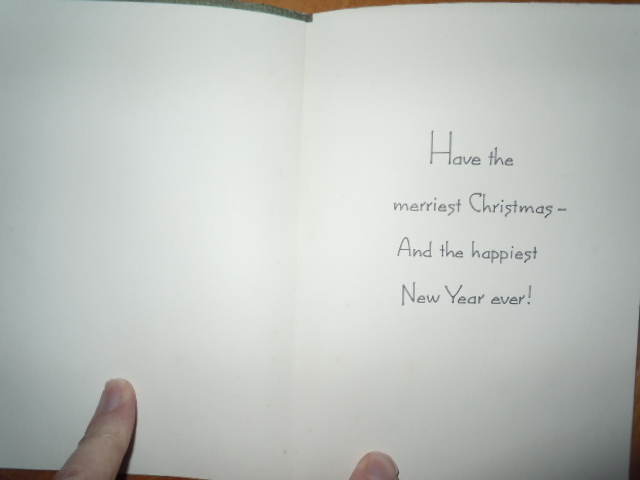 Have the
merriest Christmas –
And the happiest
New Year ever!